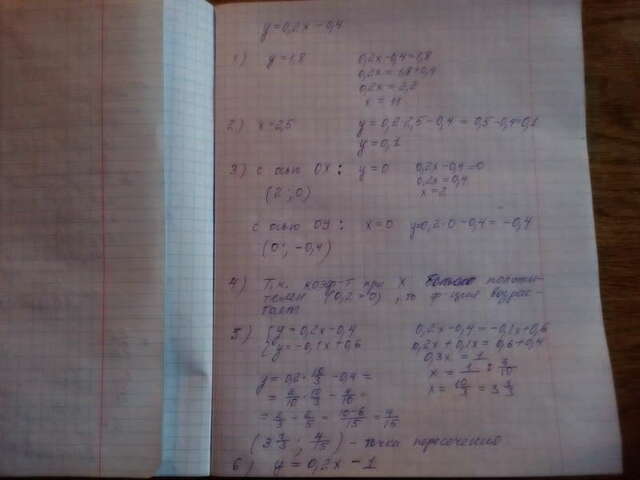 y=0,2x-0,4
1) y=1,8 0,2x-0,4=1,8
0,2x=1,8+0,4
0,2x=2,2
x=11
2) x=2,5 y=0,2·2,5-0,4=0,5-0,4=0,1
y=0,1
3) с осью ОХ: y=0 0,2x-0,4=0
0,2x=0,4
(2;0) x=2
с осью ОУ: x=0 y=0,2·0-0,4=-0,4
(0;-0,4)
4) Т.к. коэф-т при x положи-
телен (0,2>0), то ф-ция возрас-
тает
5) {y=0,2x-0,4 0,2x-0,4=-0,1x+0,6
{y=-0,1x+0,6 0,2x+0,1x=0,6+0,4
0,3x=1
x=1:3/10
y=0,2·10/3-0,4= x=10/3=3 1/3
=2/10·10/3-4/10=
=2/3-2/5=10-6/15=4/15
(3 1/3; 4/15) - точка пересечения
6) y=0,2x-1